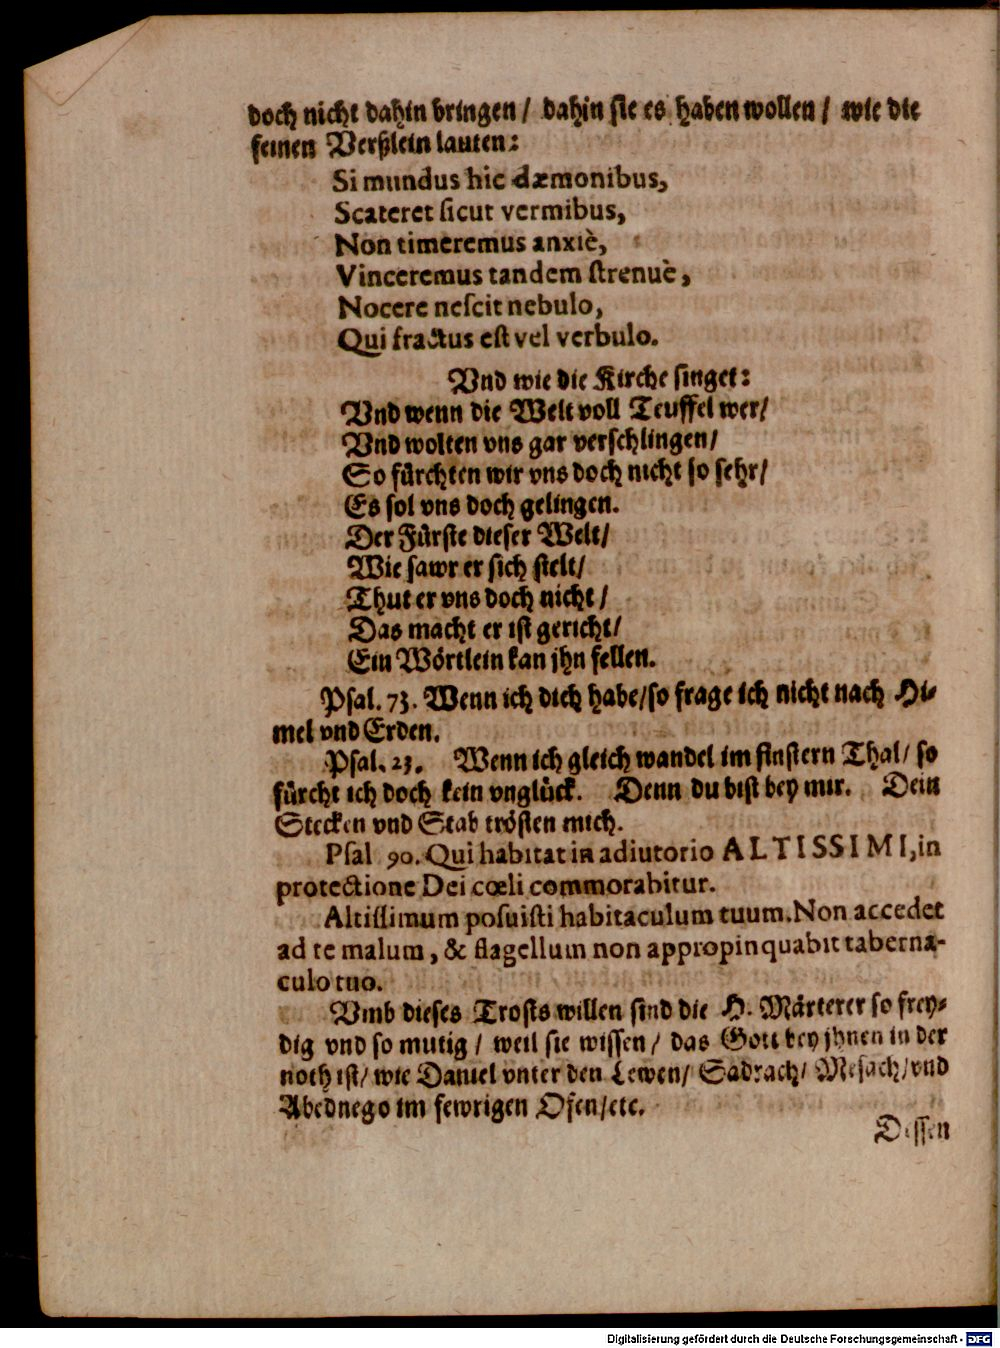 doch nicht dahin bringen / dahin sie es haben wollen / wie die
feinen Verßlein lauten:
Si mundus hic dæmonibus,
Scateret sicut vermibus,
Non timeremus anxiè,
Vinceremus tandem strenuè,
Nocere nescit nebulo,
Qui fractus est vel verbulo.
Vnd wie die Kirche singet:
Vnd wenn die Welt voll Teuffel wer/
Vnd wolten vns gar verschlingen/
So fürchten wir vns doch nicht so sehr/
Es sol vns doch gelingen.
Der Fürste dieser Welt/
Wie sawr er sich stelt/
Thut er vns doch nicht /
Das macht er ist gericht/
Ein Wörtlein kan jhn fellen.
Psal. 73. Wenn ich dich habe/so frage ich nicht nach Hi-
mel vnd Erden.
Psal. 23. Wenn ich gleich wandel im finstern Thal/ so
fürcht ich doch kein vnglück. Denn du bist bey mir. Dein
Stecken vnd Stab trösten mich.
Psal 90. Qui habitat in adiutorio ALTISSIMI, in
protectione Dei cœli commorabitur.
Altissimum posuisti habitaculum tuum. Non accedet
ad te malum, & flagellum non appropinquabit taberna-
culo tuo.
Vmb dieses Trosts willen sind die H. Märterer so frey-
dig vnd so mutig / weil sie wissen / das Gott bey jhnen in der
noth ist/ wie Daniel vnter den Lewen/ Sadrach/ Mesach/ vnd
Abednego im fewrigen Ofen/etc.
Dessen
Digitalisierung gefördert durch die Deutsche Forschungsgemeinschaft - DFG